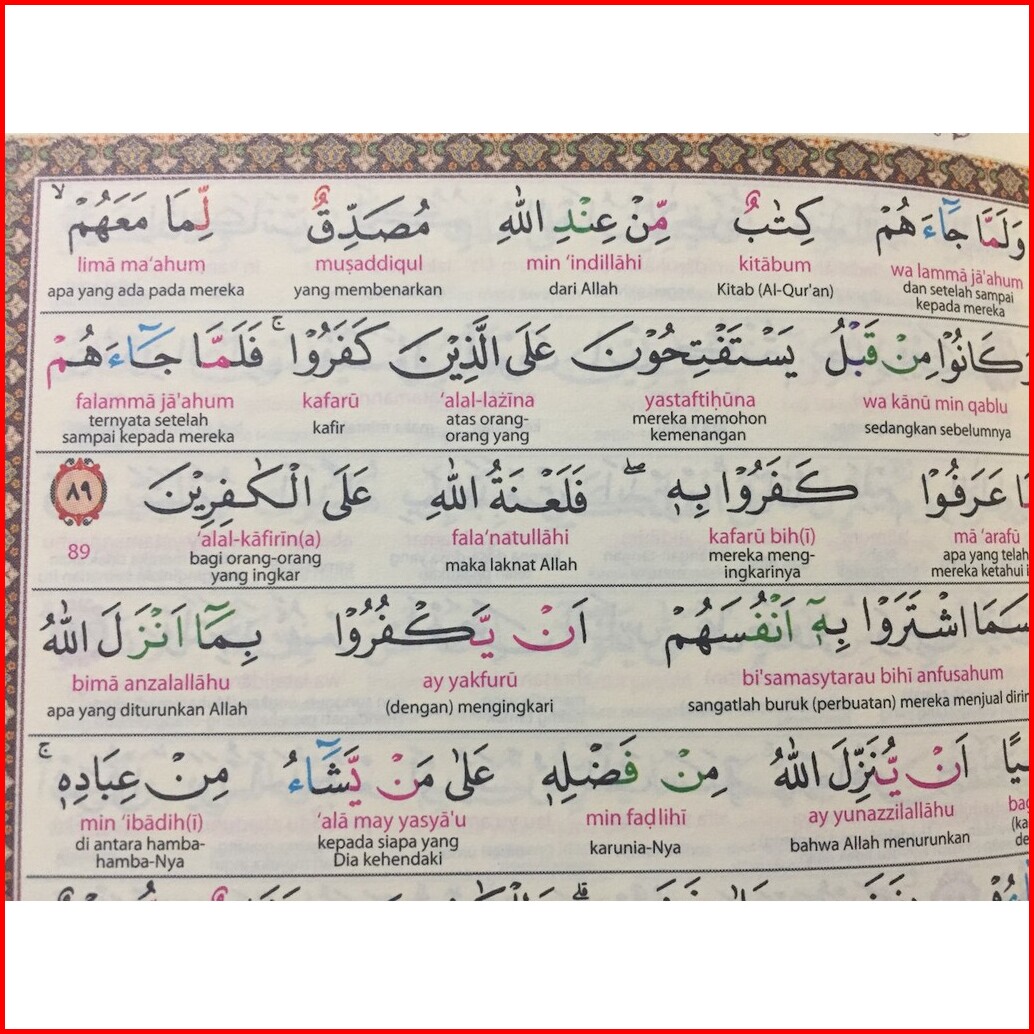 وَلَمَّا جَاۤءَهُمْ كِتٰبٌ مِّنْ عِنْدِ اللّٰهِ مُصَدِّقٌ لِّمَا مَعَهُمْۙ
wa lammā jā'ahum kitābum min ‘indillāhi muṣaddiqul limā ma‘ahum
dan setelah sampai kepada mereka Kitab (Al-Qur'an) dari Allah yang membenarkan apa yang ada pada mereka
كَانُوْا مِنْ قَبْلُ يَسْتَفْتِحُوْنَ عَلَى الَّذِيْنَ كَفَرُوْاۚ فَلَمَّا جَاۤءَهُمْ
wa kānū min qablu yastaftiḥūna ‘alal-lażīna kafarū falammā jā'ahum
sedangkan sebelumnya mereka memohon kemenangan atas orang-orang yang kafir ternyata setelah sampai kepada mereka
عَرَفُوْا كَفَرُوْا بِهٖۖ فَلَعْنَةُ اللّٰهِ عَلَى الْكٰفِرِيْنَ ٨٩
mā ‘arafū kafarū bih(ī) fala‘natullāhi ‘alal-kāfirīn(a) 89
apa yang telah mereka ketahui mereka meng-ingkarinya maka laknat Allah bagi orang-orang yang ingkar
اشْتَرَوْا بِهٖٓ اَنْفُسَهُمْ اَنْ يَّكْفُرُوْا بِمَآ اَنْزَلَ اللّٰهُ
bi'samasytarau bihī anfusahum ay yakfurū bimā anzalallāhu
sangatlah buruk (perbuatan) mereka menjual (dengan) mengingkari apa yang diturunkan Allah
اَنْ يُّنَزِّلَ اللّٰهُ مِنْ فَضْلِهٖ عَلٰى مَنْ يَّشَاۤءُ مِنْ عِبَادِهٖۚ
ay yunazzilallāhu min faḍlihī ‘alā may yasyā'u min ‘ibādih(ī)
bahwa Allah menurunkan karunia-Nya kepada siapa yang Dia kehendaki di antara hamba-hamba-Nya